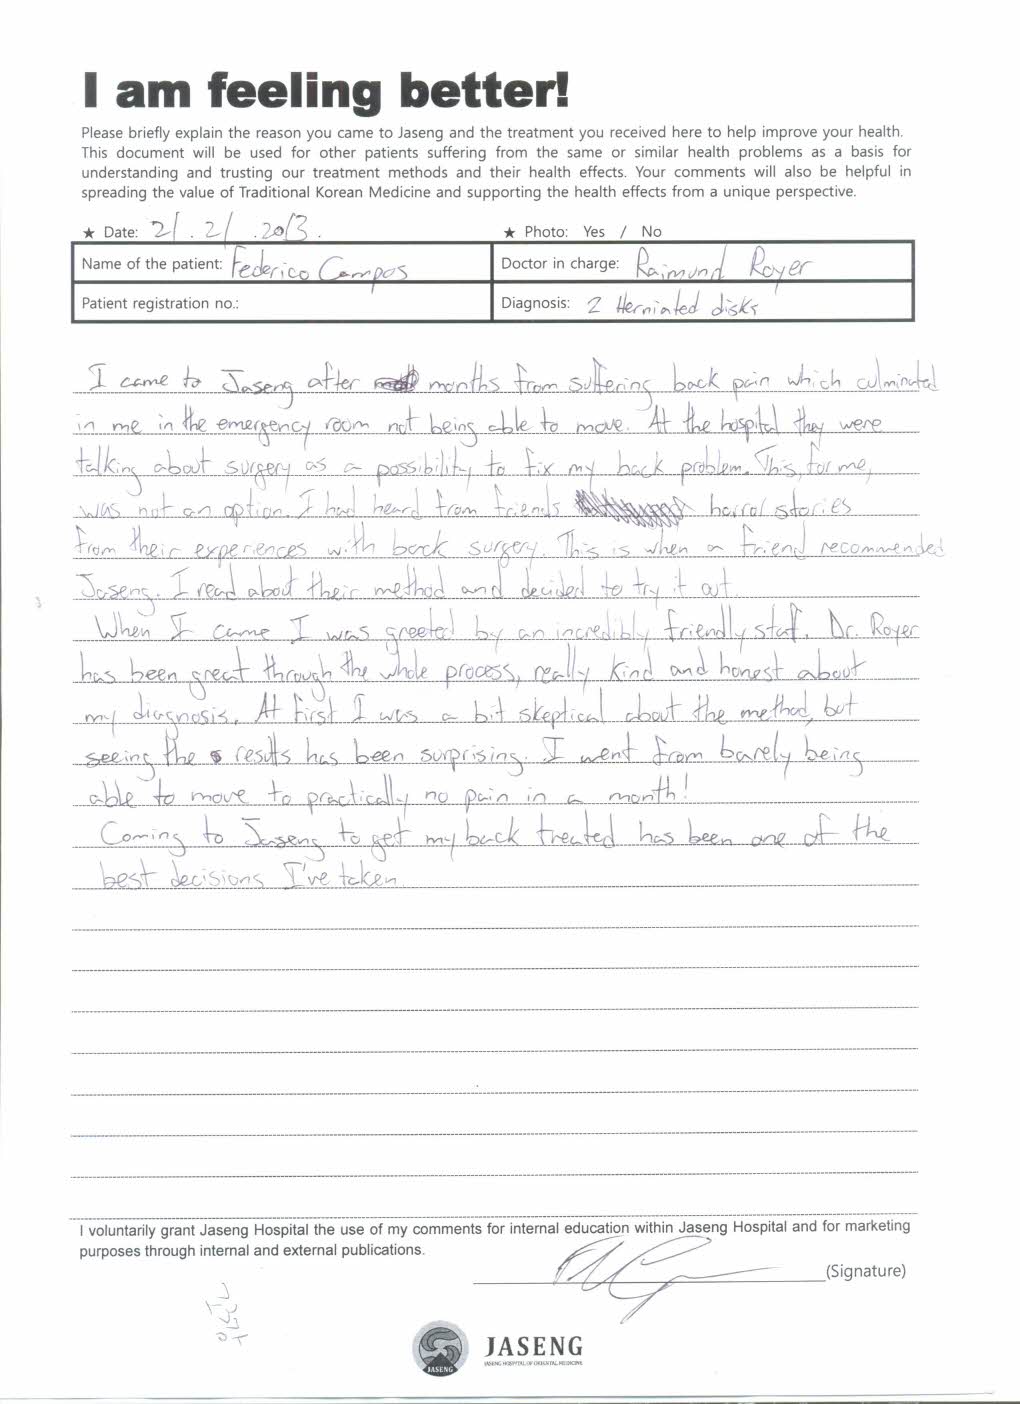 I am feeling better!
Please briefly explain the reason you came to Jaseng and the treatment you received here to help improve your health.
This document will be used for other patients suffering from the same or similar health problems as a basis for
understanding and trusting our treatment methods and their health effects. Your comments will also be helpful in
spreading the value of Traditional Korean Medicine and supporting the health effects from a unique perspective.
★ Date: 21.21.2013. ★ Photo: Yes / No
Name of the patient: Federico Campos Doctor in charge: Raimund Royer
Patient registration no.: Diagnosis: 2 Herniated disks
I came to Jaseng after months from suffering back pain which culminated
in me in the emergency room not being able to move. At the hospital they were
talking about surgery as a possibility to fix my back problem. This, for me,
was not an option. I had heard from friends horrol stories
from their experiences with back surgery. This is when a friend recommended
Jaseng. I read about their method and decided to try it out
When I came I was greeted by an incredibly friendly staff. Dr. Royer
has been great through the whole process, really kind and honest about
my diagnosis. At first I was a bit skeptical about the method, but
seeing the results has been surprising. I went from barely being
able to move to practically no pain in a month!
Coming to Jaseng to get my back treated has been one of the
best decisions I've taken
I voluntarily grant Jaseng Hospital the use of my comments for internal education within Jaseng Hospital and for marketing
purposes through internal and external publications.
(Signature)
JASENG
JASENG
JASENG HOSPITAL OF ORIENTAL MEDICINE